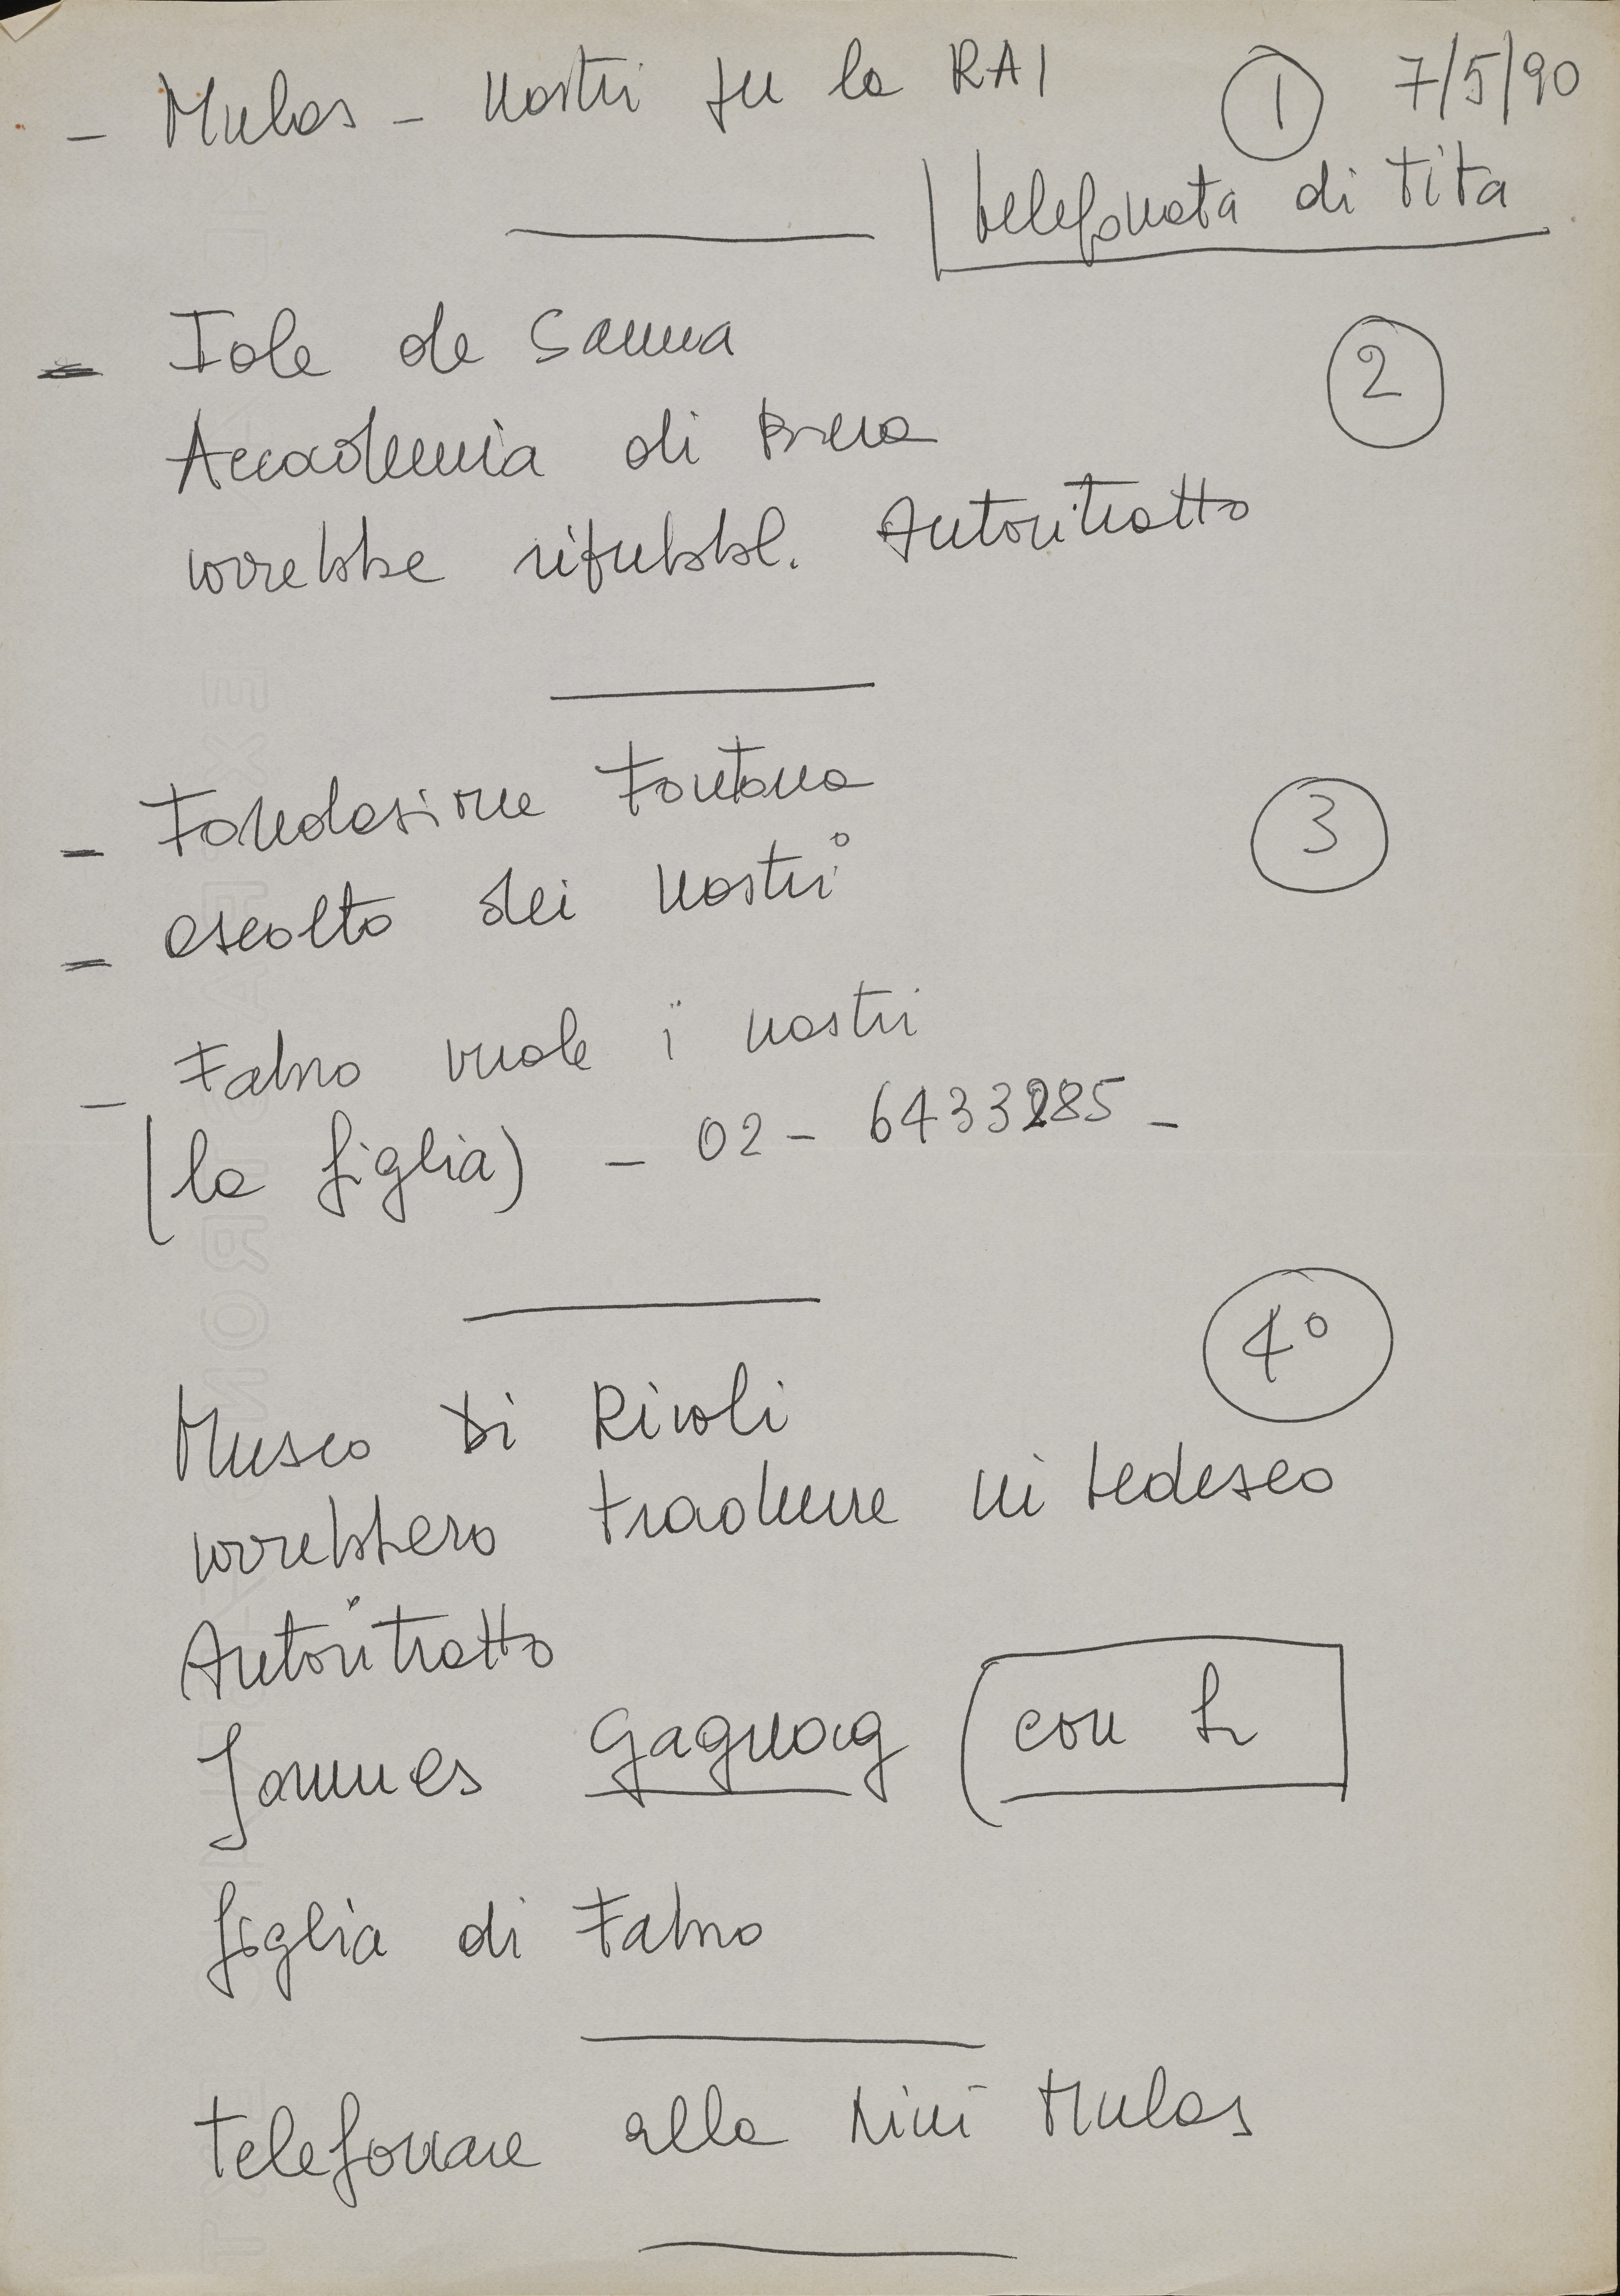 - Mulas - nastri per la RAI 1 7/5/90
telefonata di Tita
- Iole de Sanna
2
Accademia di Brera
vorrebbe ripubbl. Autoritratto
- Fondazione Fontana
3
- ascolto dei nastri
- Fabro vuole i nastri
(la figlia) - 02 - 6433285 -
4°
Museo di Rivoli
vorrebbero tradurre in tedesco
Autoritratto
Jannes Gagnag (con h
figlia di Fabro
telefonare alla Nini Mulas